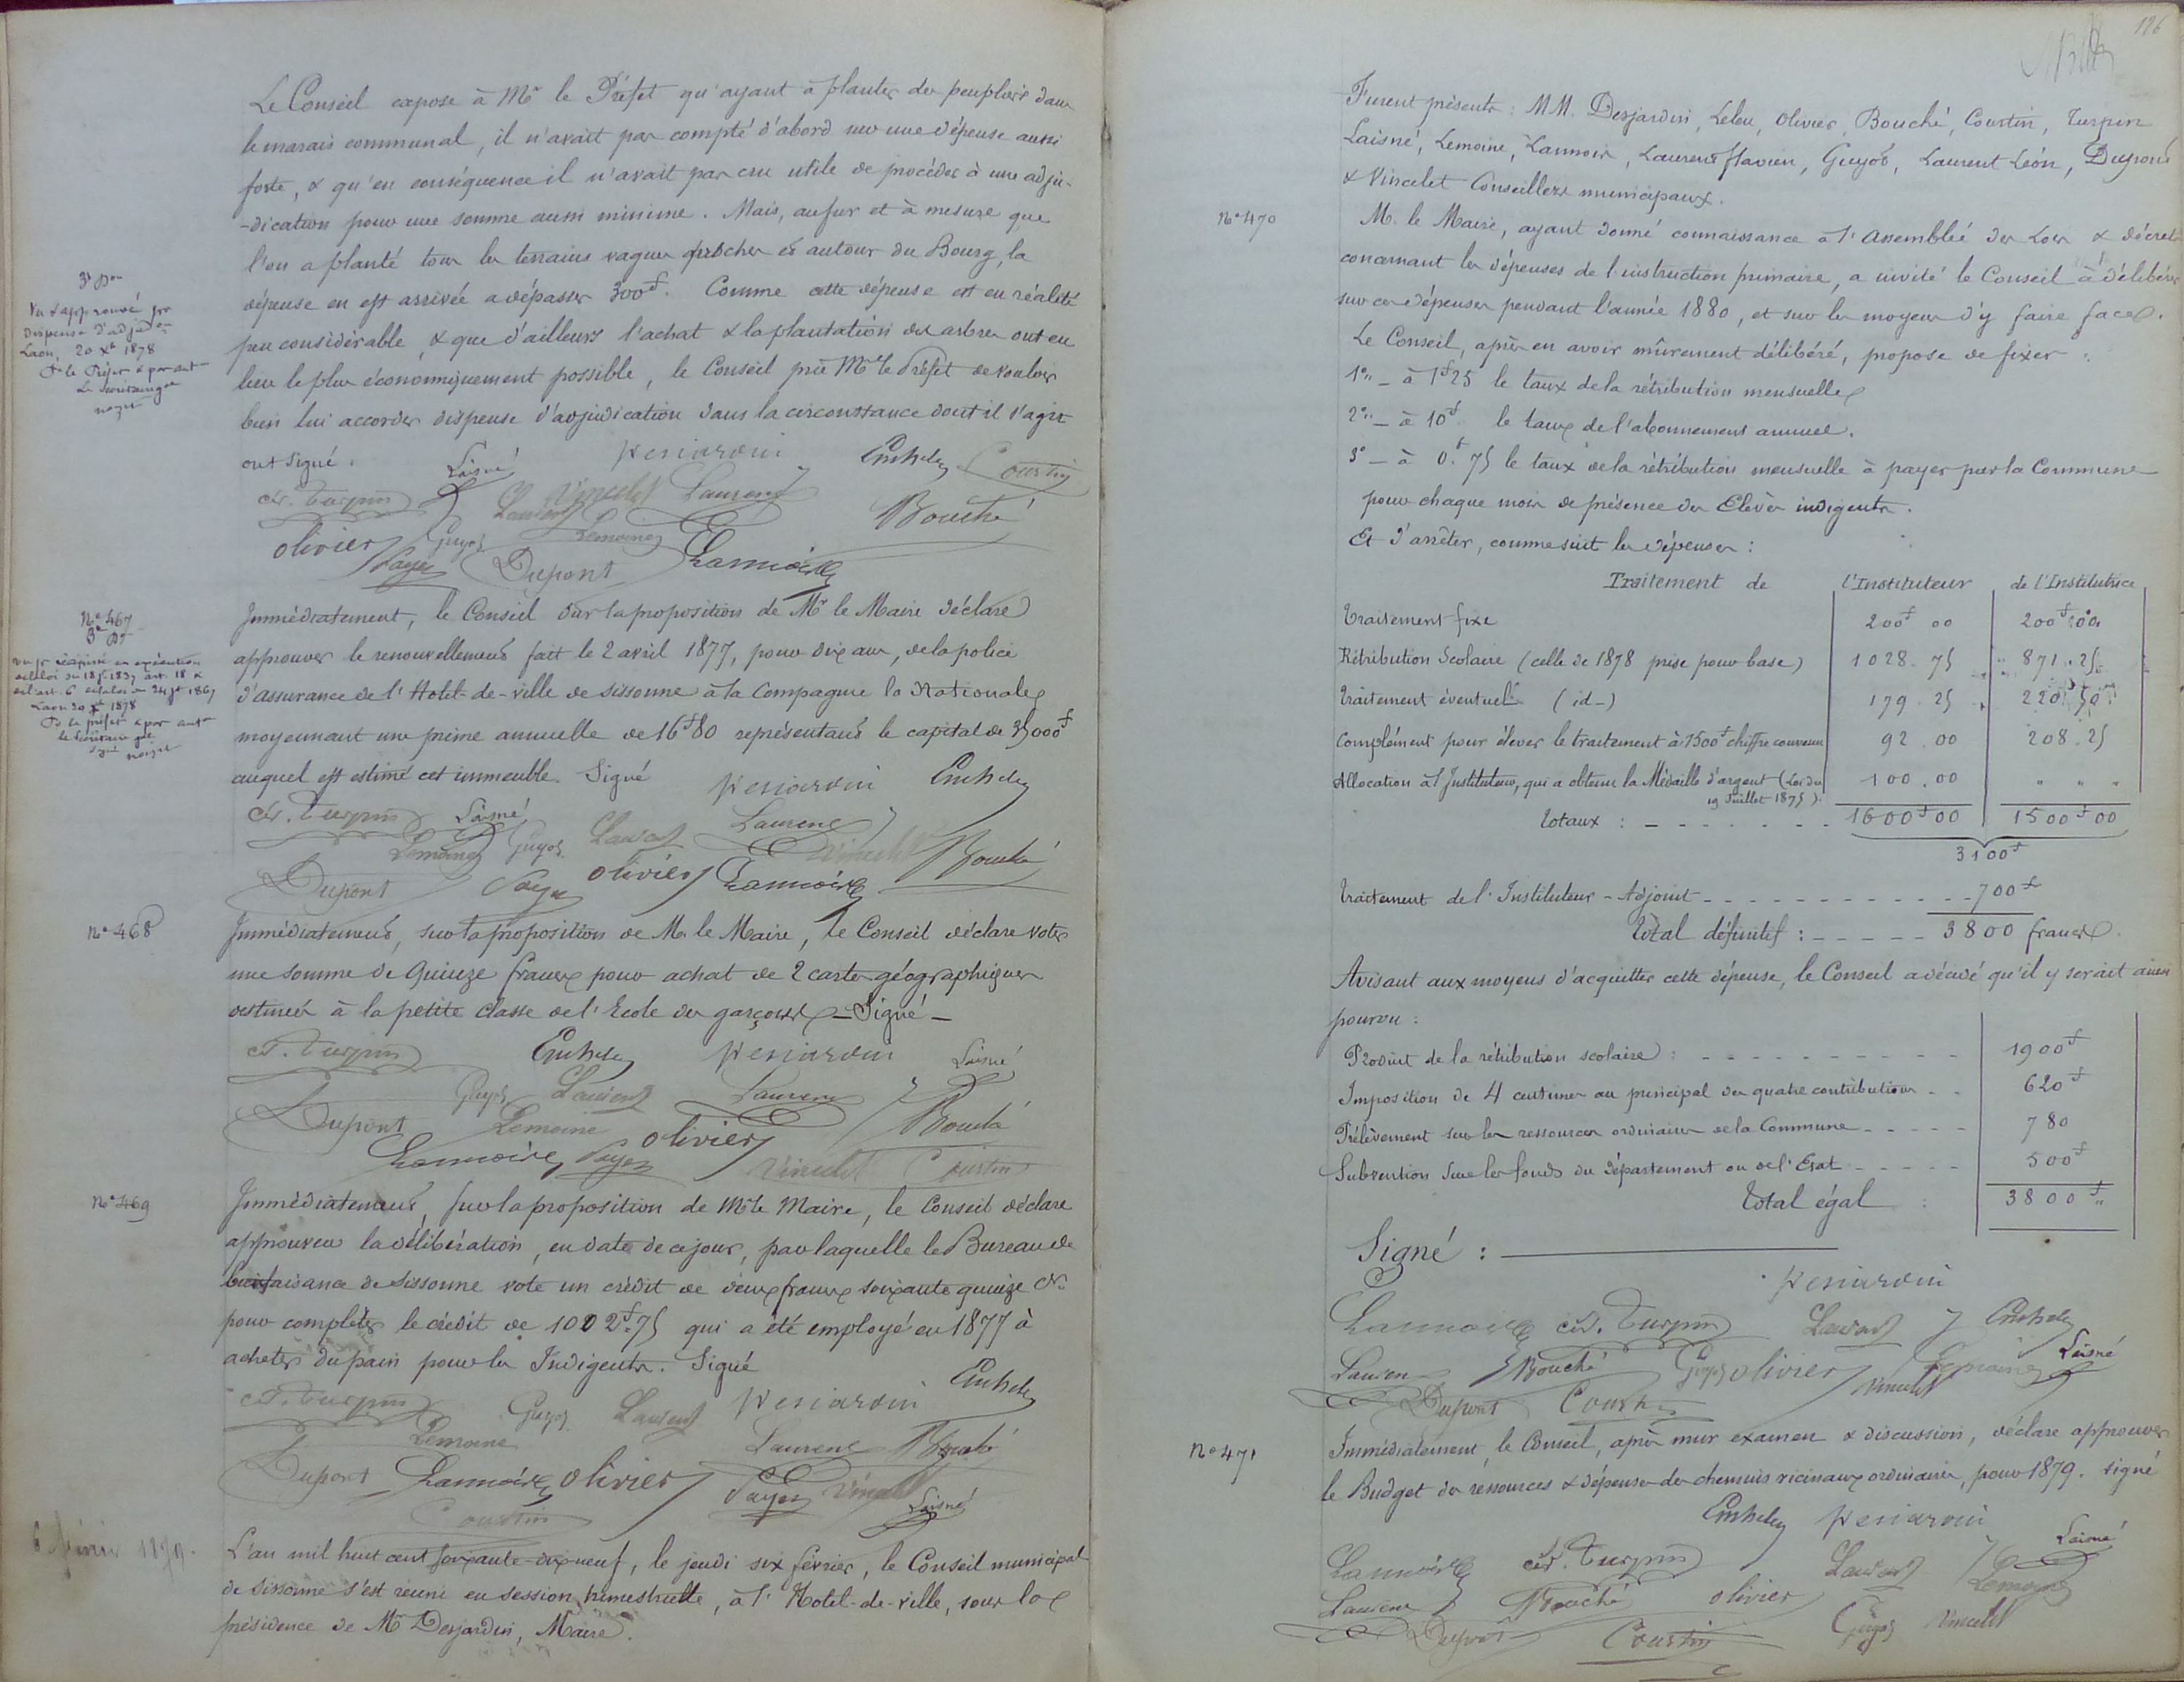 Le Conseil expose à Mr le Préfet qu'ayant à planter des peupliers dans
le marais communal, il n'avait pas compté d'abord sur une dépense aussi
forte, & qu'en conséquence il n'avait pas cru utile de procéder à une adju-
-dication pour une somme aussi minime. Mais, au fur et à mesure que
l'on a planté tous les terrains vagues proches et autour du Bourg, la
dépense en est arrivée a dépasser 300f. Comme cette dépense est en réalité
peu considérable, & que d'ailleurs l'achat & la plantation des arbres ont eu
lieu le plus économiquement possible, le Conseil prie Mr le Préfet de vouloir
bien lui accorder dispense d'adjudication dans la circonstance dont il s'agit
ont signé.
3e Don
Vu & approuvé pr
dispense d'adjudon
Laon, 20 Xbre 1878
Laisné Desjardin Courtin
Turpin Vincelet Laurent
Laurent Bouché
Olivier Guyot Lemoine
Payen Dupont Lannois
No 467
Immédiatement, le Conseil sur la proposition de Mr le Maire déclare
approuver le renouvellement fait le 2 avril 1877, pour dix ans, de la police
d'assurance de l'Hotel-de-ville de Sissonne à la Compagnie la Nationale
moyennant une prime annuelle de 16f80 représentant le capital de 35000f
auquel est estimé cet immeuble. Signé
Desjardin
Turpin Laisné Laurent
Lemoine Guyot Laurent Vincelet Bouché
Dupont Payen Olivier Lannois
No 468
Immédiatement, sur la proposition de Mr le Maire, le Conseil déclare voter
une somme de Quinze francs pour achat de 2 cartes géographiques
destinées à la petite classe de l'Ecole des garçons - Signé -
Turpin Desjardin Laisné
Guyot Laurent Laurent
Dupont Lemoine Olivier Bouché
Lannois Payen Vincelet Courtin
No 469
Immédiatement, sur la proposition de Mr le Maire, le Conseil déclare
approuver la délibération, en date de ce jour, par laquelle le Bureau de
bienfaisance de Sissonne vote un crédit de deux francs soixante quinze Cs
pour compléter le crédit de 1002f.75 qui a été employé en 1877 à
acheter du pain pour les Indigents. Signé
Turpin Guyot Laurent Desjardin
Lemoine Laurent Bouché
Dupont Lannois Olivier Payen Vincelet
Courtin Laisné
6 février 1879.
L'an mil huit cent soixante-dix-neuf, le jeudi six février, le Conseil municipal
de Sissonne s'est réuni en session trimestrielle, à l'Hotel-de-ville, sous la
présidence de Mr Desjardin, Maire.
126
Furent présents: MM. Desjardin, Leleu, Olivier, Bouché, Courtin, Turpin
Laisné, Lemoine, Lannois, Laurent flavien, Guyot, Laurent Léon, Dupont
& Vincelet Conseillers municipaux.
No 470
M. le Maire, ayant donné connaissance à l'Assemblée des Lois & décret
concernant les dépenses de l'instruction primaire, a invité le Conseil à délibérer
sur ces dépenses pendant l'année 1880, et sur les moyens d'y faire face.
Le Conseil, après en avoir mûrement délibéré, propose de fixer :
1o - à 1f25 le taux de la rétribution mensuelle
2o - à 10f le taux de l'abonnement annuel.
3o - à 0f.75 le taux de la rétribution mensuelle à payer par la Commune
pour chaque mois de présence des Elèves indigents.
Et d'arrêter, comme suit les dépenses :
Traitement de l'Instituteur de l'Institutrice
Traitement fixe 200f 00 200f 00
Rétribution Scolaire (celle de 1878 prise pour base) 1028.75 871.25
Traitement éventuel (id-) 179.25 220.50
Complément pour élever le traitement à 1500f chiffre convenu 92.00 208.25
Allocation à l'Instituteur, qui a obtenu la Médaille d'argent (Loi du 100.00 " " "
19 Juillet 1875).
Totaux : - - - 1600f00 1500f00
3100f
Traitement de l'Instituteur-Adjoint - - - 700f
Total définitif : - - - 3800 francs.
Avisant aux moyens d'acquitter cette dépense, le Conseil a décidé qu'il y serait ainsi
pourvu :
Produit de la rétribution scolaire : - - - 1900f
Imposition de 4 centimes au principal des quatre contributions - - 620f
Prélèvement sur les ressources ordinaires de la Commune - - - 780
Subvention sur les fonds du département ou de l'Etat - - - 500f
Total égal : 3800f"
Signé :
Desjardin
Lannois Turpin Laurent
Laurent Bouché Guyot Olivier Lemoine Laisné
Dupont Courtin Vincelet
No 471
Immédiatement, le Conseil, après mur examen & discussion, déclare approuver
le Budget des ressources & dépenses des chemins vicinaux ordinaires, pour 1879. signé
Desjardin
Lannois Turpin Laurent Laisné
Laurent Bouché Olivier Lemoine
Dupont Courtin Guyot Vincelet